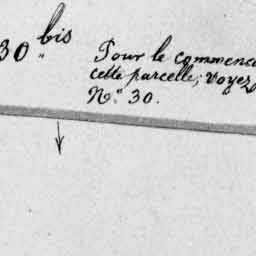 30 bis
Pour le commence
cette parcelle, voyez
N° 30.